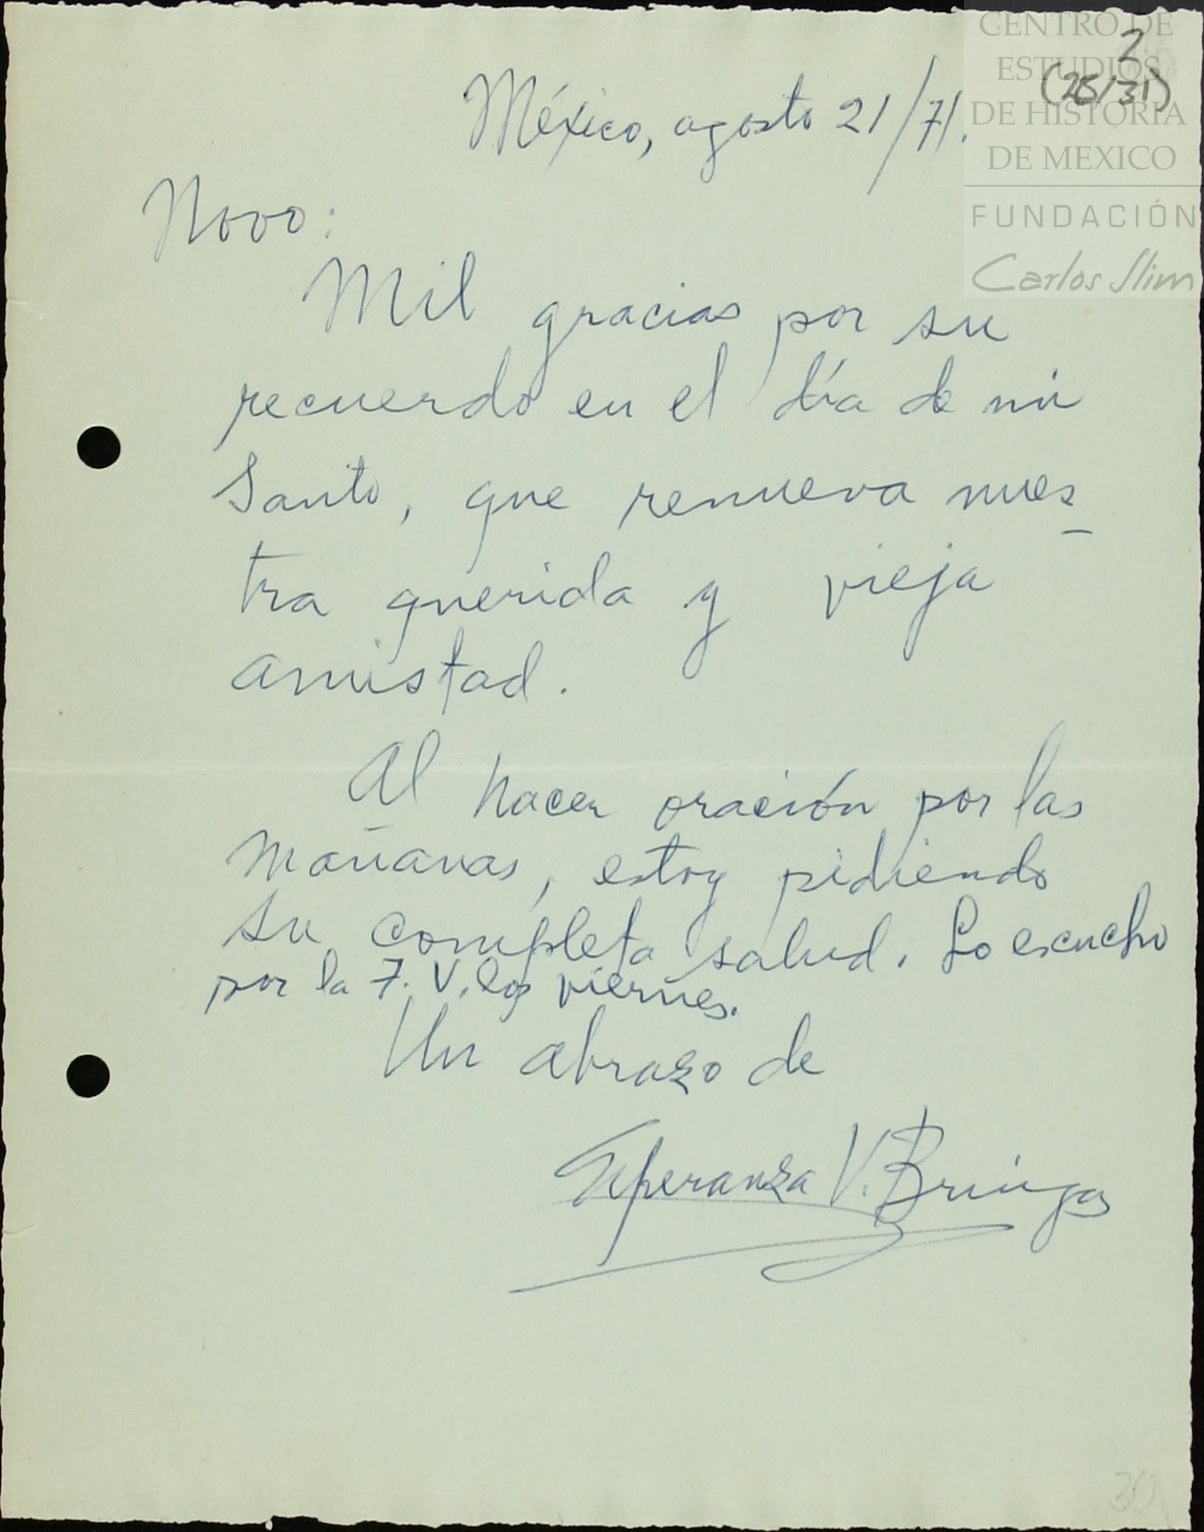 CENTRO DE
ESTUDIOS
DE HISTORIA
DE MEXICO
FUNDACIÓN
Carlos Slim
2
(25/31)
México, agosto 21/71.
Novo:
Mil gracias por su
recuerdo en el día de mi
Santo, que renueva nues
tra querida y vieja
amistad.
Al hacer oración por las
mañanas, estoy pidiendo
su completa salud. Lo escucho
por la T.V. los viernes.
Un abrazo de
Esperanza V. Bringas
30